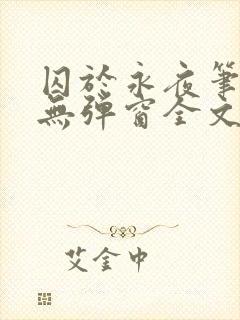 囚於永夜筆
無彈窗全文
艾金中